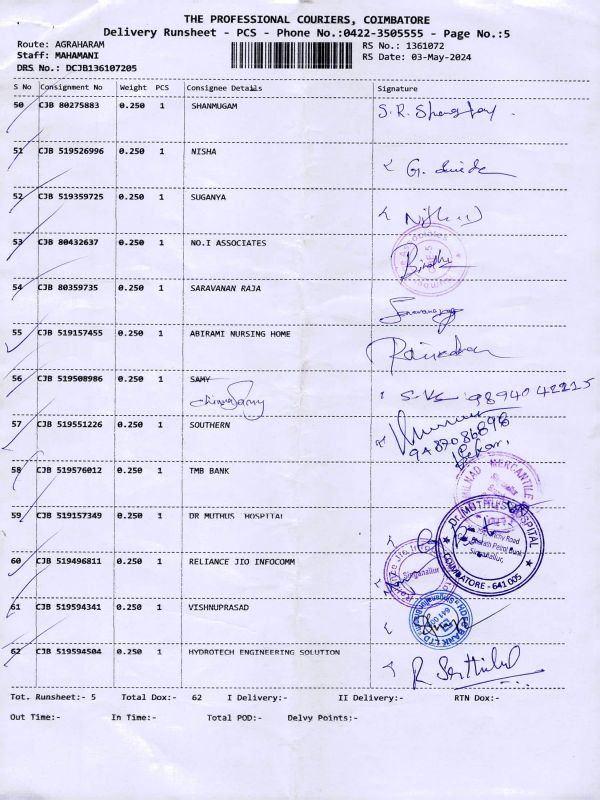 THE PROFESSIONAL COURIERS, COIMBATORE
Delivery Runsheet - PCS - Phone No.:0422-3505555 - Page No.:5
Route: AGRAHARAM RS No.: 1361072
Staff: MAHAMANI RS Date: 03-May-2024
DRS No.: DCJB136107205
S No Consignment No Weight PCS Consignee Details Signature
50 CJB 80275883 0.250 1 SHANMUGAM
51 CJB 519526996 0.250 1 NISHA
52 CJB 519359725 0.250 1 SUGANYA
53 CJB 80432637 0.250 1 NO.I ASSOCIATES
54 CJB 80359735 0.250 1 SARAVANAN RAJA
55 CJB 519157455 0.250 1 ABIRAMI NURSING HOME
56 CJB 519508986 0.250 1 SAMY 9894042215
57 CJB 519551226 0.250 1 SOUTHERN
58 CJB 519576012 0.250 1 TMB BANK
MERCANTILE
59 CJB 519157349 0.250 1 DR MUTHUS HOSPITAL
Dr. MUTHUS HOSPITAL
Singanallur,
COIMBATORE - 641 005
60 CJB 519496811 0.250 1 RELIANCE JIO INFOCOMM
Singanallur
61 CJB 519594341 0.250 1 VISHNUPRASAD
HDFC BANK LTD
62 CJB 519594504 0.250 1 HYDROTECH ENGINEERING SOLUTION
Tot. Runsheet:- 5 Total Dox:- 62 I Delivery:- II Delivery:- RTN Dox:-
Out Time:- In Time:- Total POD:- Delvy Points:-